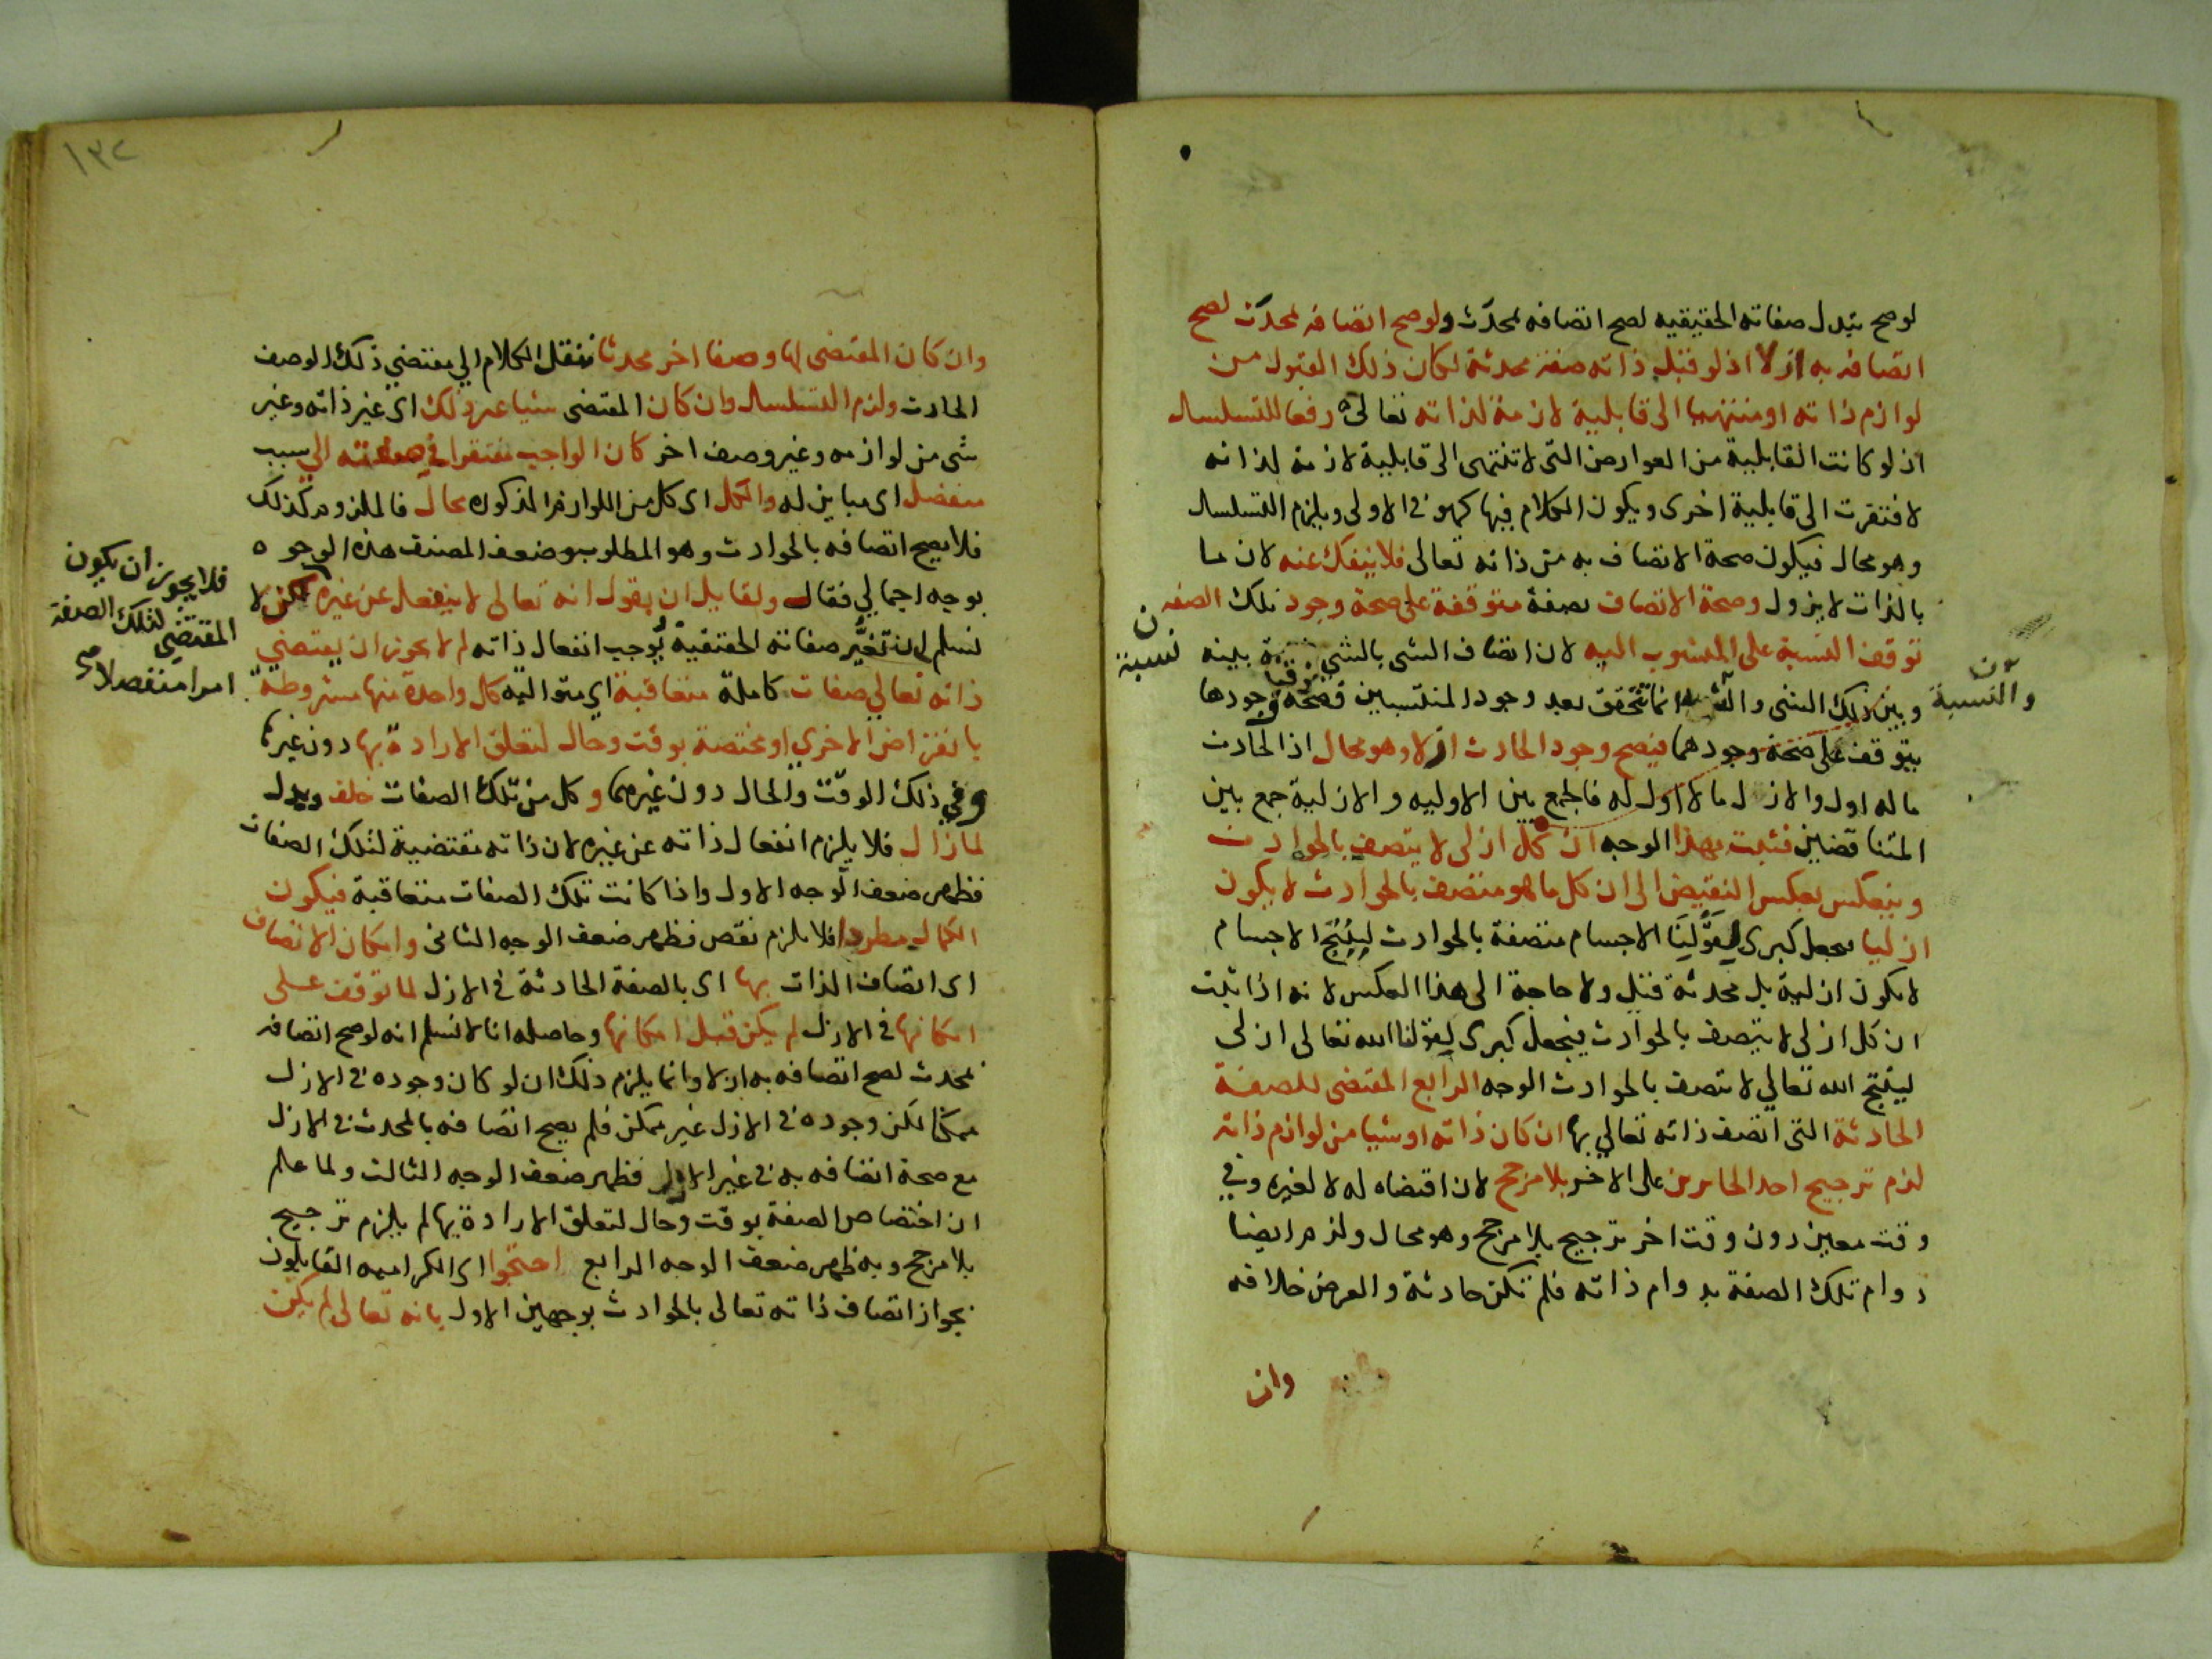 لو صح تبدل صفاته الحقيقيه لصح اتصافه بمحدث ولو صح اتصافه بمحدث لصح
اتصافه به ازلا اذ لو قبل ذاته صفة محدثة لكان ذلك القبول من
لوازم ذاته او منتهيا الى قابلية لازمة لذاته تعالى دفعا للتسلسل
اذ لو كانت القابلية من العوارض التى لا تنتهى الى قابلية لازمة لذاته
لافتقرت الى قابلية اخرى ويكون الكلام فيها كهو فى الاولى ويلزم التسلسل
وهو محال فيكون صحة الاتصاف به من ذاته تعالى فلا ينفك عنه لان ما
بالذات لا يزول وصحة الاتصاف بصفة متوقفة على صحة وجود تلك الصفه
توقف النسبة على المنسوب اليه لان اتصاف الشى بالشى نسبة بينه
وبين ذلك الشى والنسبة انما تتحقق بعد وجود المنتسبين فصحة وجودها
يتوقف على صحة وجودهما فيصح وجود الحادث ازلا وهو محال اذ الحادث
ما له اول والازل ما لا اول له فالجمع بين الاوليه والازلية جمع بين
المتناقضين فثبت بهذا الوجه ان كل ازلى لا يتصف بالحوادث
وينعكس بعكس النقيض الى ان كل ما هو متصف بالحوادث لا يكون
ازليا يجعل كبرى لِقَوْلِنَا الاجسام متصفة بالحوادث لِيُنْتِجَ الاجسام
لا يكون ازلية بل محدثة قيل ولا حاجة الى هذا العكس لانه اذا ثبت
ان كل ازلى لا يتصف بالحوادث فيجعل كبرى لقولنا الله تعالى ازلى
لينتج الله تعالي لا يتصف بالحوادث الوجه الرابع المقتضى للصفة
الحادثة التى اتصف ذاته تعالي بها ان كان ذاته او شيا من لوازم ذاته
لزم ترجيح احد الجائزين على الاخر بلا مرجح لان اقتضاه له لا لغيره وفي
وقت معين دون وقت اخر ترجيح بلا مرجح وهو محال ولزم ايضا
دوام تلك الصفة بدوام ذاته فلم تكن حادثة والفرض خلافه
وان
نسبة
والنسبة
وان كان المقتضى لها وصفا اخر محدثا ننقل الكلام الي مقتضي ذلك الوصف
الحادث ولزم التسلسل وان كان المقتضى شيا غير ذلك اى غير ذاته وغير
شى من لوازمه وغير وصف اخر كان الواجب مفتقرا في صفته الي سبب
منفصل اى مباين له والكل اى كل من اللوازم المذكوره محال فالملزوم كذلك
فلا يصح اتصافه بالحوادث وهو المطلوب وضعف المصنف هذه الوجوه
بوجه اجمالي فقال ولقايل ان يقول انه تعالى لا ينفعل عن غيره لكن لا
نسلم ان تغيُّر صفاته الحقيقية يُوجب انفعال ذاته لم لا يجوز ان يقتضي
ذاته تعالي صفات كاملة متعاقبة اي متواليه كل واحدة منها مشروطة
بانقراض الاخري او مختصة بوقت وحال لتعلق الارادة بها دون غيرها
وفي ذلك الوقت والحال دون غيرهما وكل من تلك الصفات خلف وبدل
لما زال فلا يلزم انفعال ذاته عن غيره لان ذاته مقتضية لتلك الصفات
فظهر ضعف الوجه الاول واذا كانت تلك الصفات متعاقبة فيكون
الكمال مطردا فلا يلزم نقص فظهر ضعف الوجه الثانى وامكان الاتصاف
اى اتصاف الذات بها اى بالصفة الحادثة فى الازل لما توقف على
امكانها فى الازل لم يكن قبل امكانها وحاصله انا لا نسلم انه لو صح اتصافه
بمحدث لصح اتصافه به ازلا وانما يلزم ذلك ان لو كان وجوده فى الازل
ممكنا لكن وجوده فى الازل غير ممكن فلم يصح اتصافه بالمحدث فى الازل
مع صحة اتصافه به فى غير الازل فظهر ضعف الوجه الثالث ولما علم
ان اختصاص الصفة بوقت وحال لتعلق الارادة بها لم يلزم ترجيح
بلا مرجح وبه ظهر ضعف الوجه الرابع احتجوا اى الكراميه القايلون
بجواز اتصاف ذاته تعالى بالحوادث بوجهين الاول بانه تعالى لم يكن
فلا يجوز ان يكون
المقتضي لتلك الصفة
امرا منفصلا صح
١٣٢